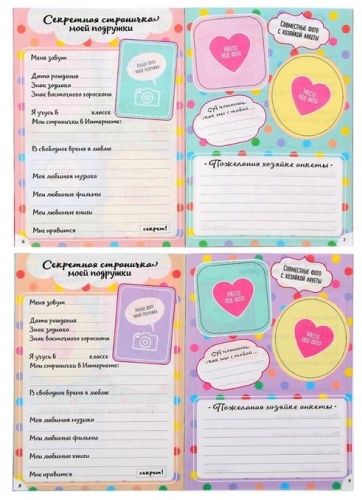 Секретная страничка
моей подружки
Меня зовут
Дата рождения
Знак зодиака
Знак восточного гороскопа
Лучшее фото
моей подружки
Я учусь в классе
Мои странички в Интернете:
В свободное время я люблю
Моя любимая музыка
Мои любимые фильмы
Мои любимые книги
Мне нравится
секрет!
6
Совместные фото
с хозяйкой анкеты
Место
под фото
Место
под фото
А помнишь,
как мы с тобой...
Пожелания хозяйке анкеты
7
Секретная страничка
моей подружки
Меня зовут
Дата рождения
Знак зодиака
Знак восточного гороскопа
Лучшее фото
моей подружки
Я учусь в классе
Мои странички в Интернете:
В свободное время я люблю
Моя любимая музыка
Мои любимые фильмы
Мои любимые книги
Мне нравится
секрет!
8
Совместные фото
с хозяйкой анкеты
Место
под фото
Место
под фото
А помнишь,
как мы с тобой...
Пожелания хозяйке анкеты
9